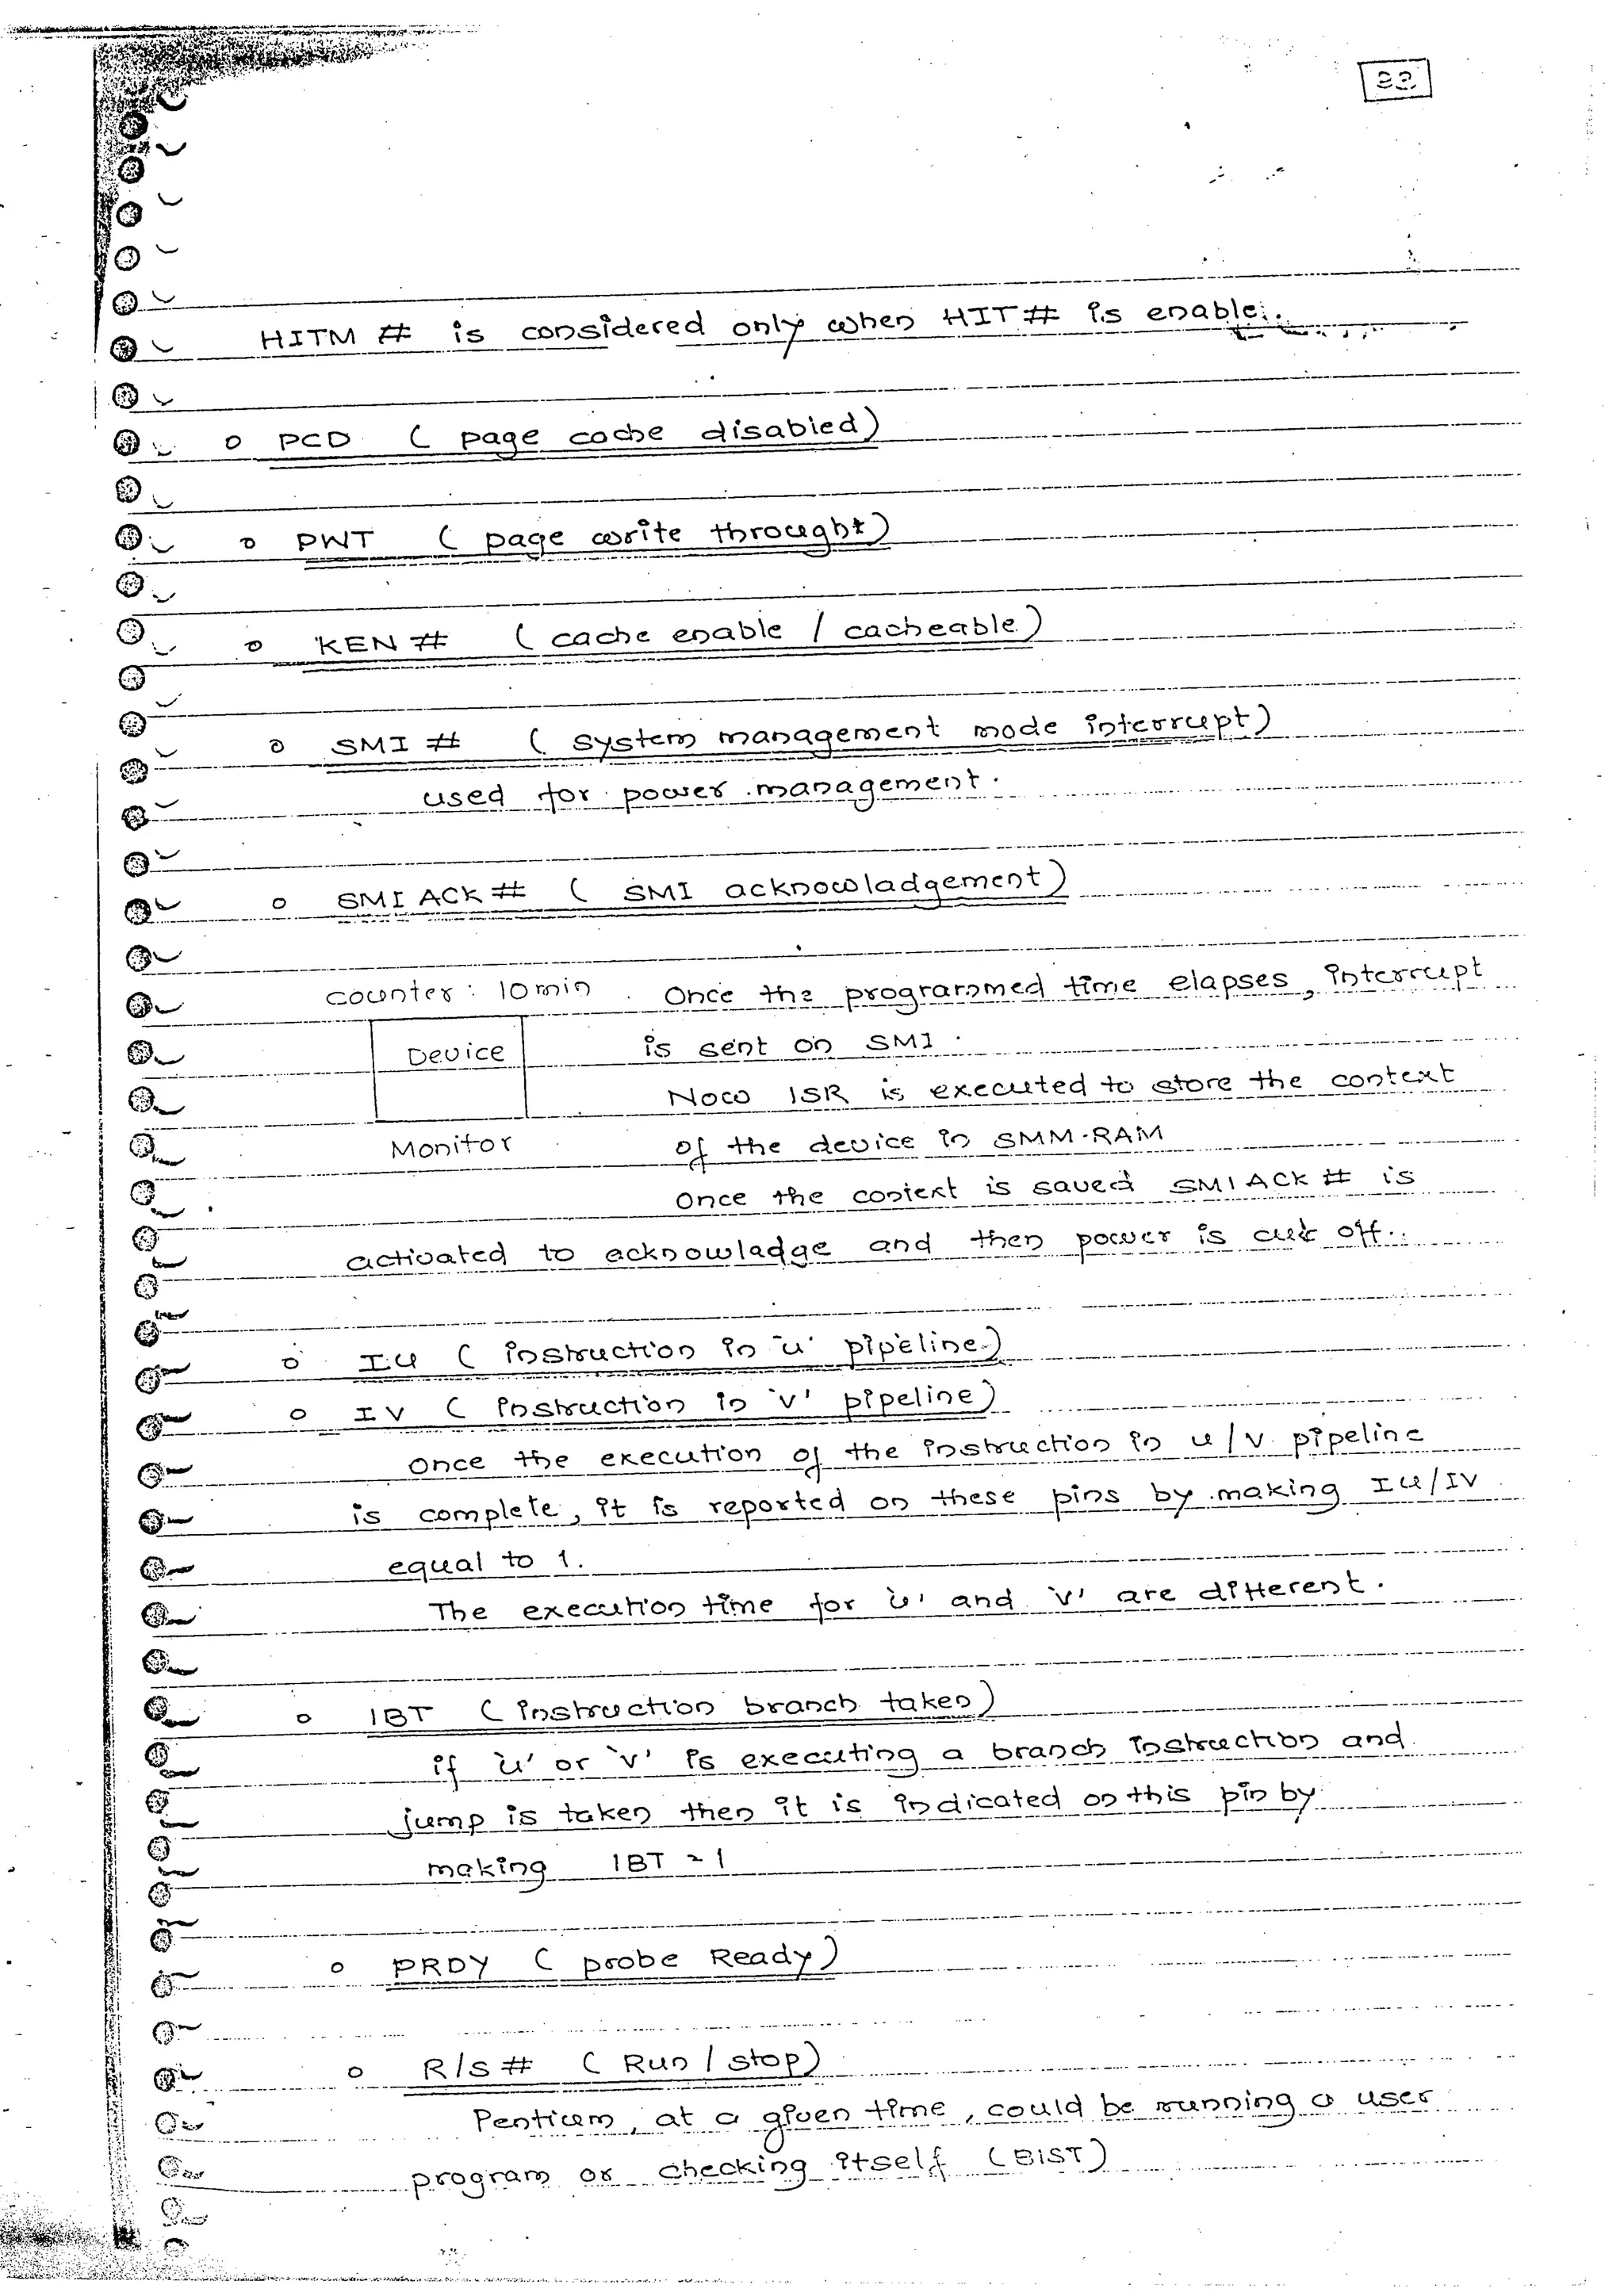 HITM # is considered only when HIT# is enable.
o PCD ( page cache disabled)
o PWT ( page write throught)
o KEN # ( cache enable / cacheable)
o SMI # ( system management mode interrupt)
used for power management.
o SMI ACK # ( SMI acknowladgement)
counter : 10 min
Device
Monitor
Once the programmed time elapses, interrupt
is sent on SMI.
Now ISR is executed to store the context
of the device in SMM-RAM
Once the context is saved SMI ACK # is
activated to acknowladge and then power is cut off.
o IU ( instruction in 'u' pipeline)
o IV ( instruction in 'v' pipeline)
Once the execution of the instruction in u/v pipeline
is complete, it is reported on these pins by making IU/IV
equal to 1.
The execution time for 'u' and 'v' are different.
o IBT ( instruction branch taken)
if 'u' or 'v' is executing a branch instruction and
jump is taken then it is indicated on this pin by
making IBT = 1
o PRDY ( probe Ready)
o R/S # ( Run / stop)
Pentium, at a given time, could be running a user
program or checking itself (BIST)